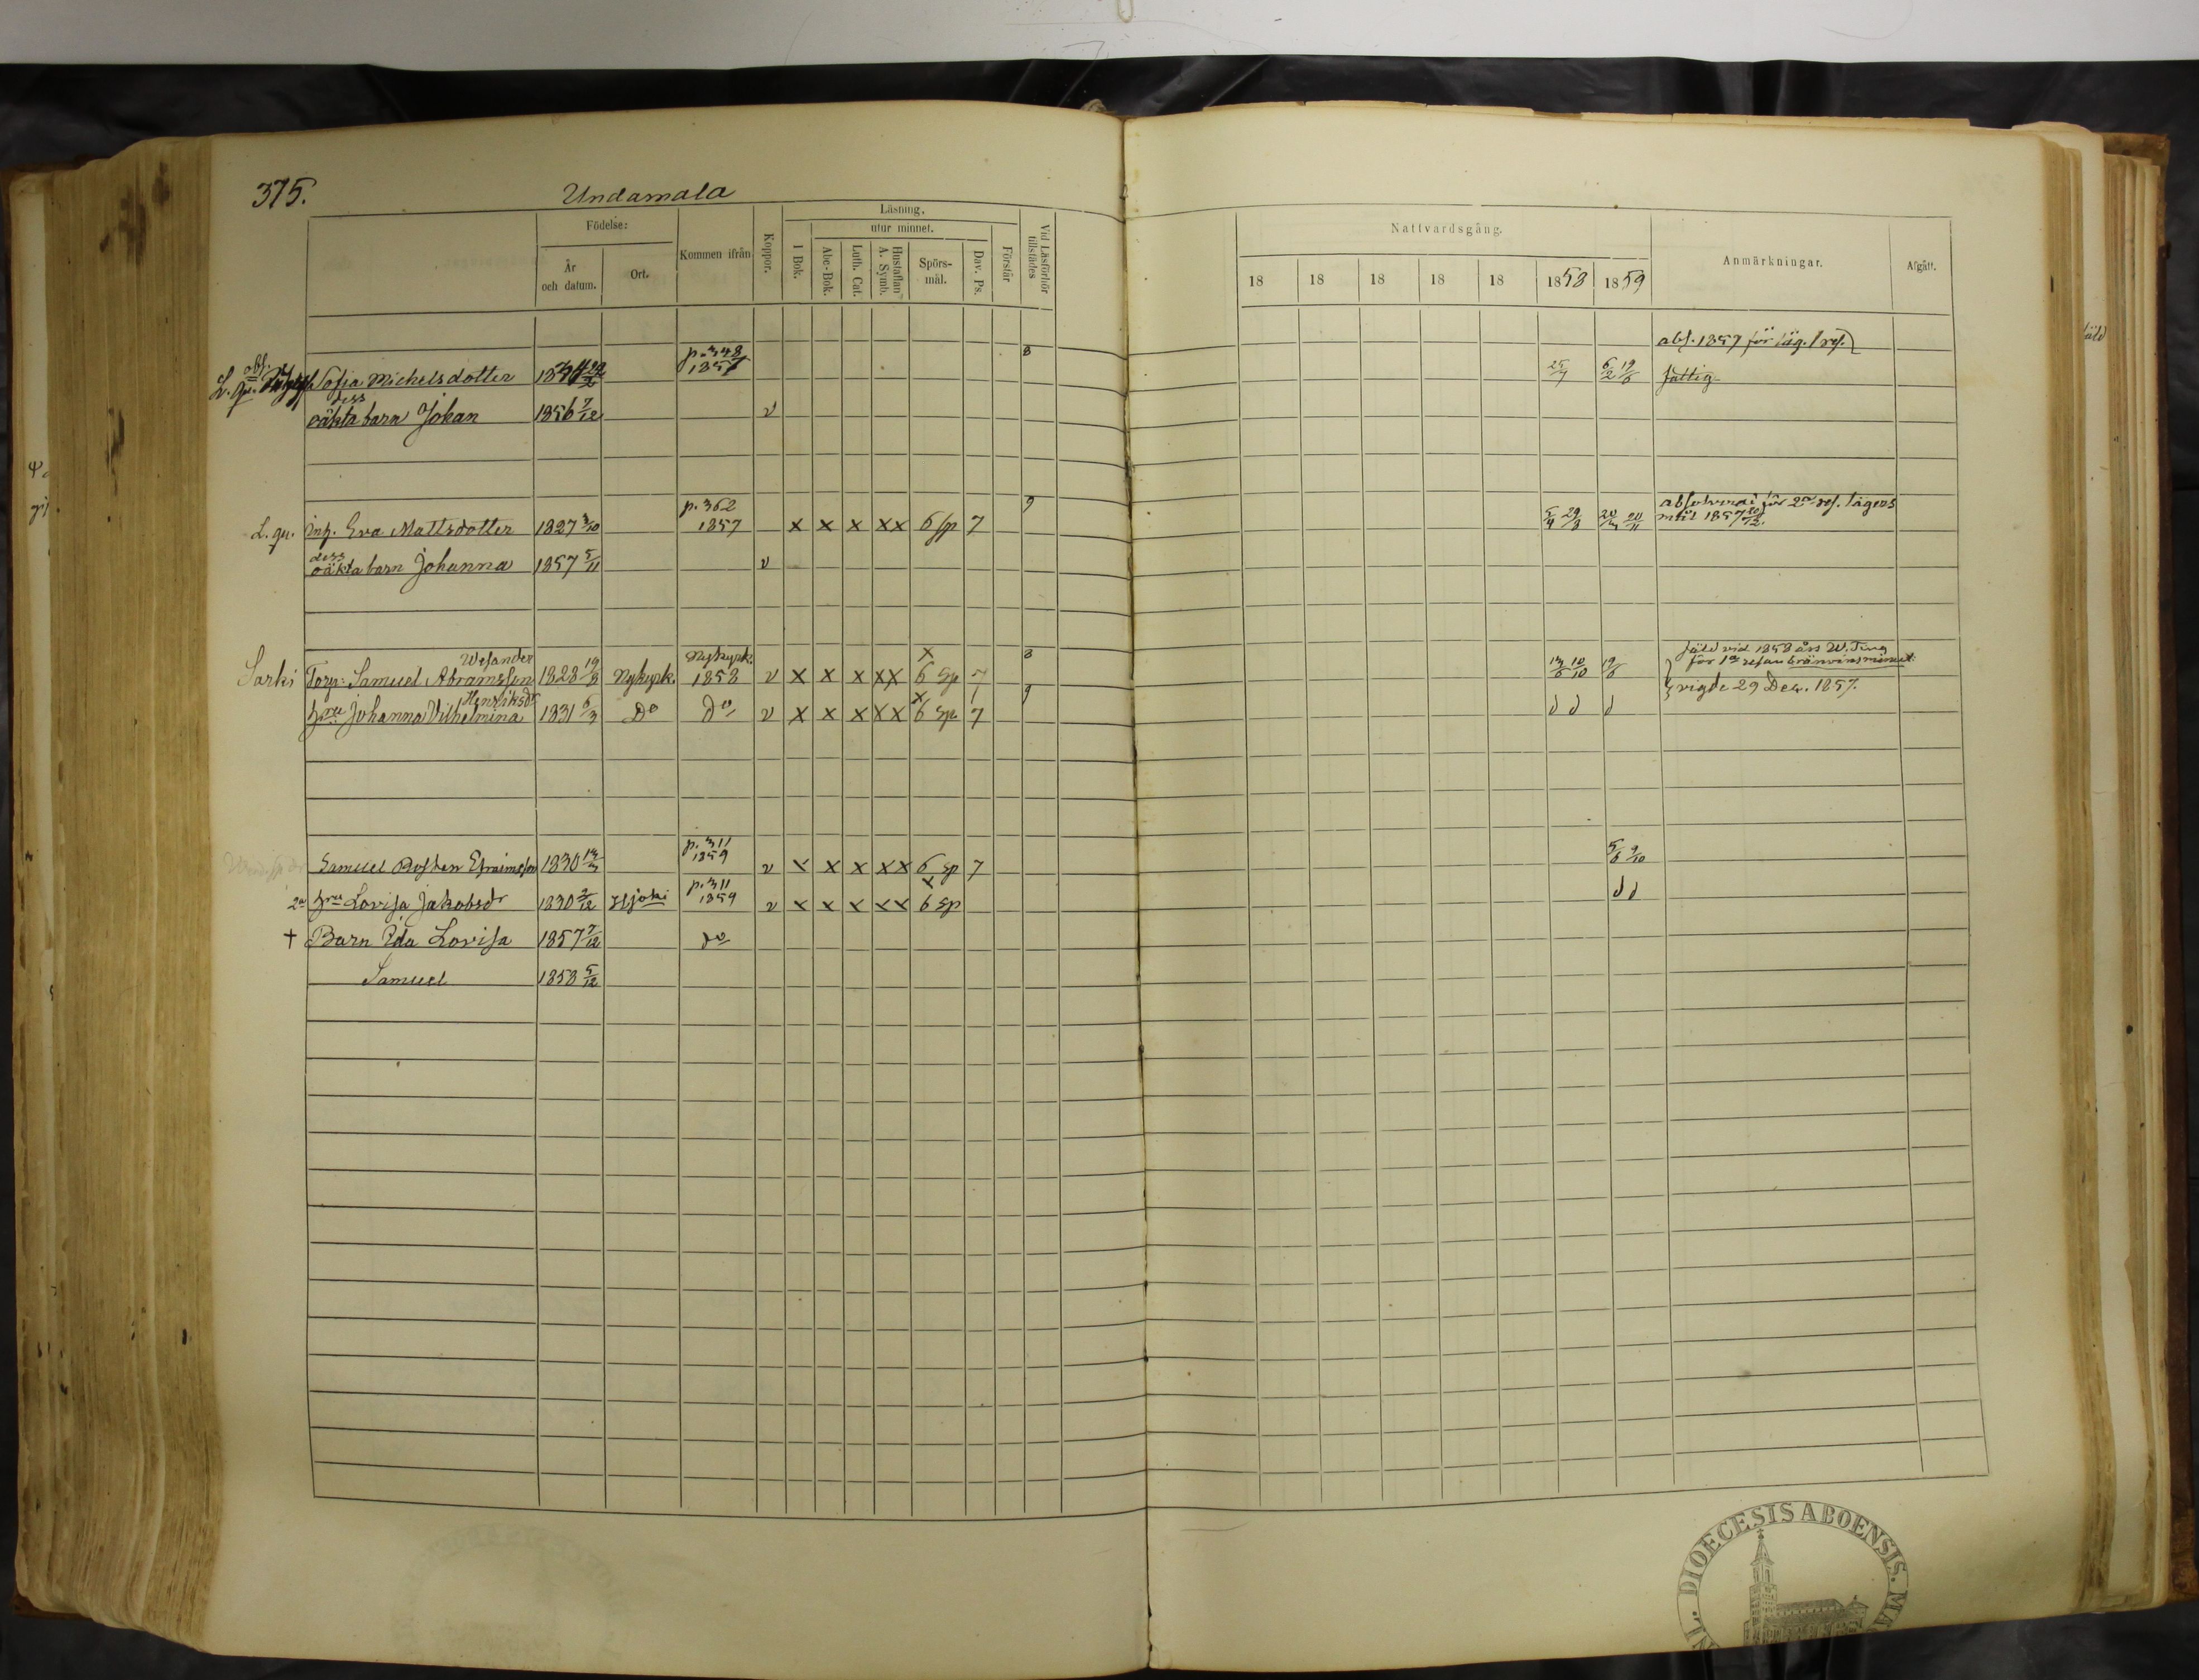 375.
Undamala
Födelse:
År och datum.
Ort.
Kommen ifrån
Koppor.
Läsning.
I Bok.
utur minnet.
Abc-Bok.
Luth. Cat.
Hustaflan A. Symb.
Spörsmål.
Dav. Ps.
Förstår
Vid Läsförhör tillstädes
Nattvardsgång.
18 18 18 18 18 1858 1859
Anmärkningar.
Afgått.
abs. 1857 för läg.
L. qv. Sofia Michelsdotter p. 348 1857 8 25/7 6/2 19/6 fattig
dess
oäkta barn Johan 1856 7/12 v
L. qu. inh. Eva Mattsdotter 1827 3/10 p. 362 1857 x x x xx 6 sp 7 9 5/4 29/8
för 2dra res. lägers
mål 1857
dess
oäkta barn Johanna 1857 5/11 v
Sarki Torp. Samuel Abramsson Wesander 1828 19/8 Nykyrk. Nykyrk. 1858 v x x x xx x 6 sp 7 8 10/10 19/6
fäld vid 1858 års W. Ting
för 1sta resan bränvins
vigde 29 Dec. 1857.
hru Johanna Vilhelmina Henriksdr 1831 6/3 Do Do v x x x xx x 6 sp 7 9 d d d
Samuel Efraimsson 1830 p. 311 1859 v x x x xx 6 sp 7 5/6 9/10
2a hru Lovisa Jakobsdr 1830 2/12 p. 311 1859 v x x x xx x 6 sp d d
† Barn Ida Lovisa 1857 7/12 do
Samuel 1858 5/12
DIOECESIS ABOENSIS.